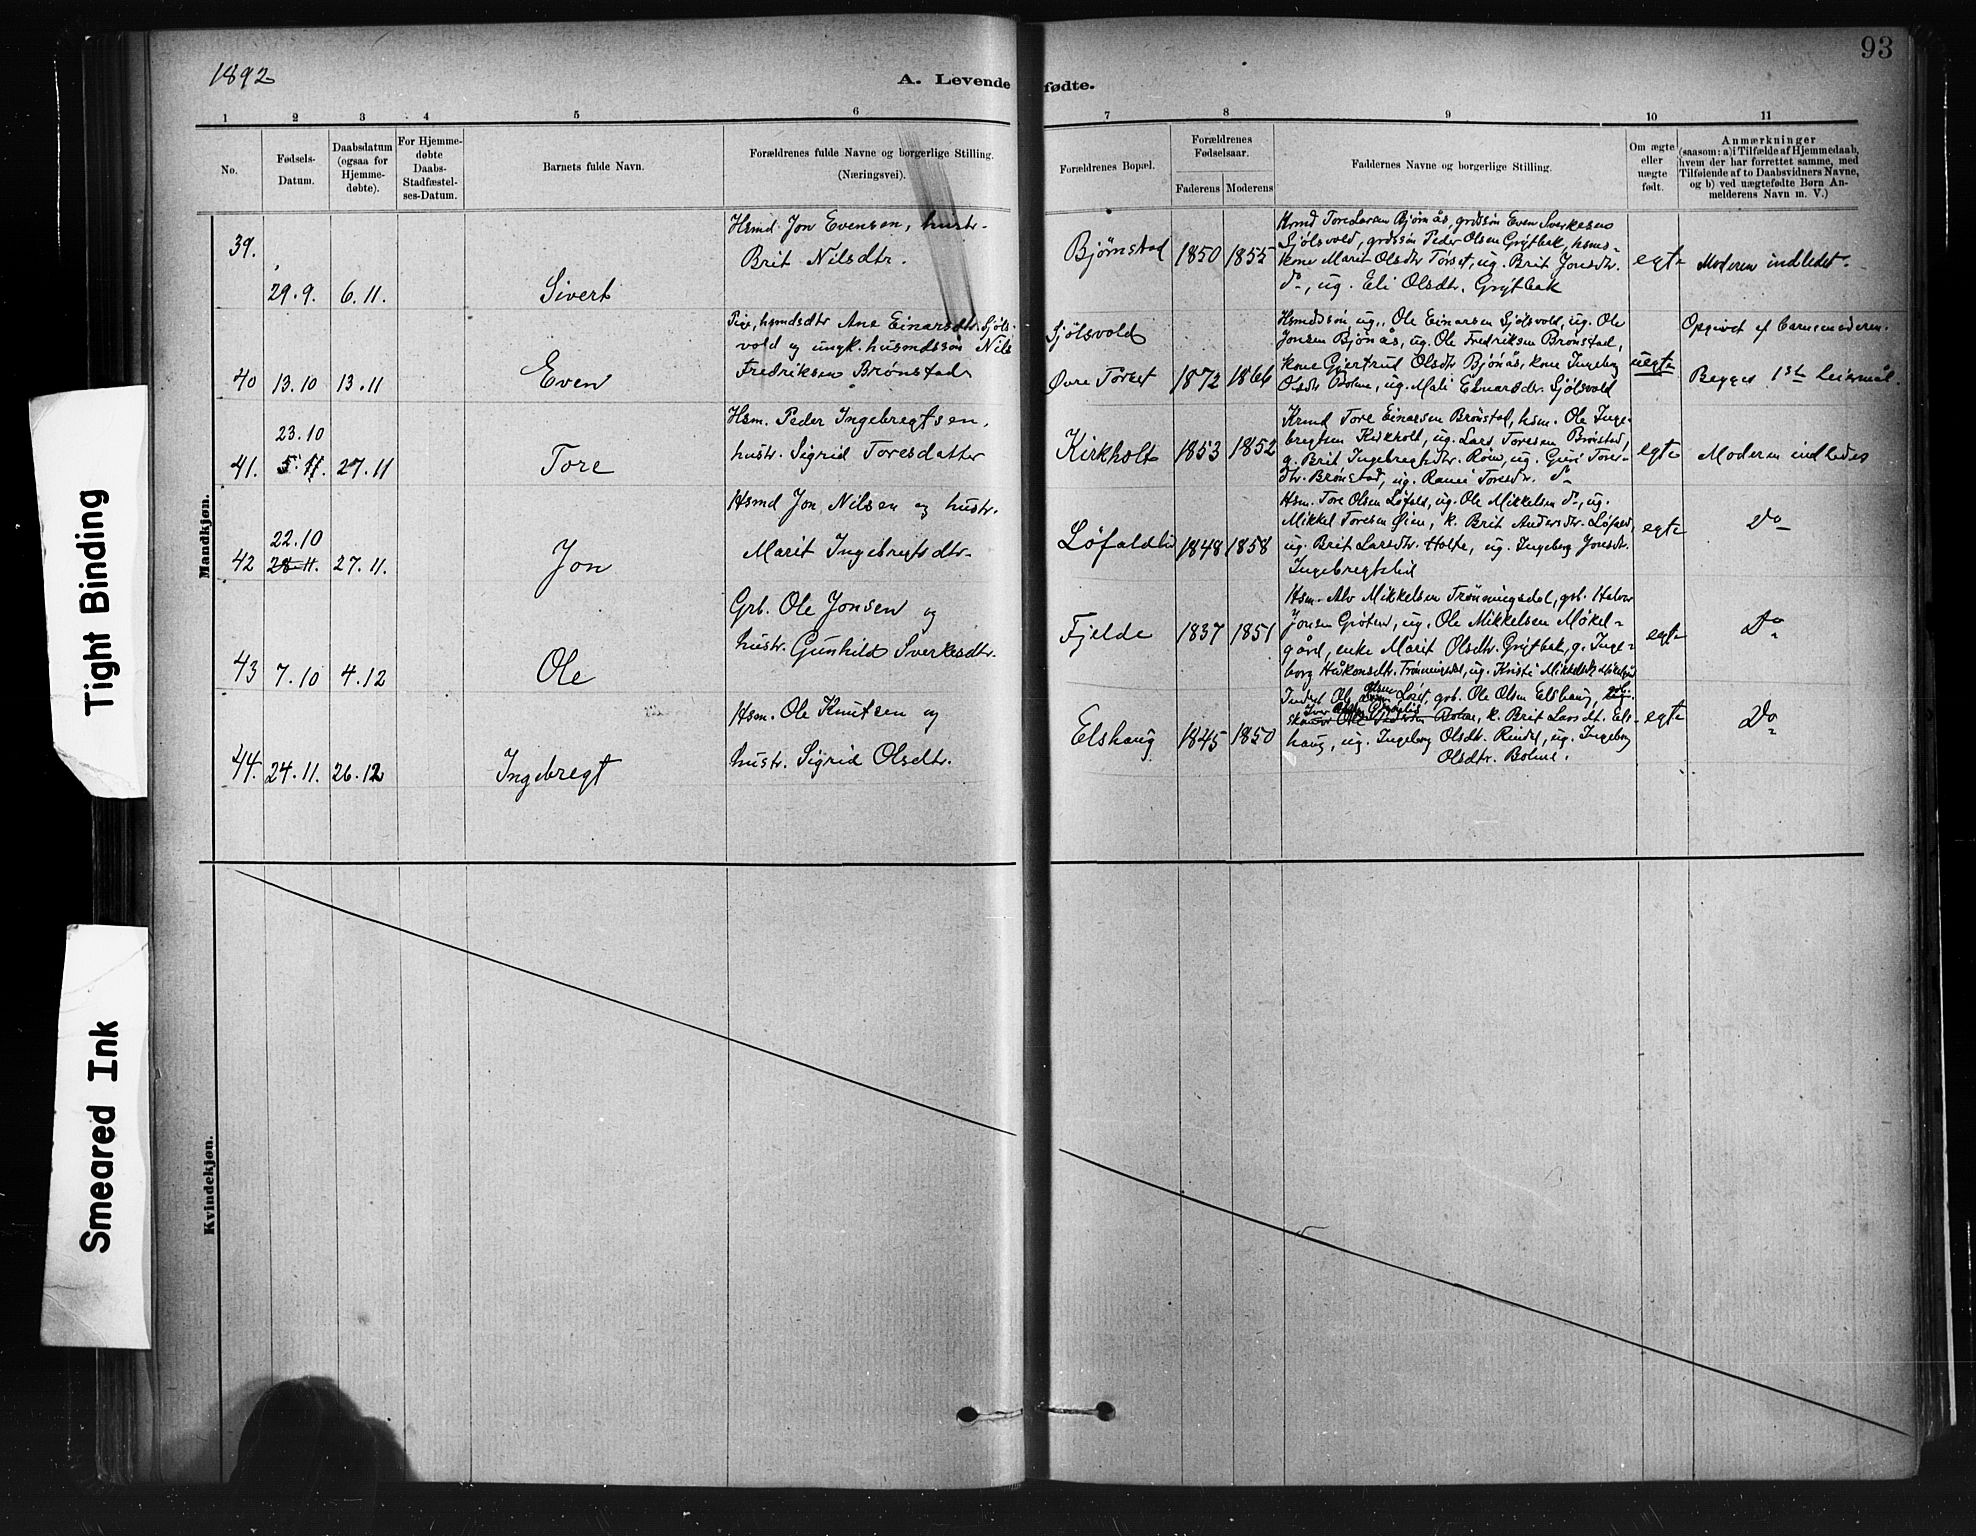 1892
93
A. Levende fødte.
1 2 3 4 5 6 7 8 9 10 11
No.
Fødsels-
Datum.
Daabsdatum
(ogsaa for
Hjemme-
døbte).
For Hjemme-
døbte
Daabs-
Stadfæstel-
ses-Datum.
Barnets fulde Navn.
Forældrenes fulde Navne og borgerlige Stilling.
(Næringsvei).
Forældrenes Bopæl.
Forældrenes
Fødselsaar.
Faderens Moderens
Faddernes Navne og borgerlige Stilling.
Om ægte
eller
uægte
født.
Anmærkninger
(saasom: a) i Tilfælde af Hjemmedaab,
hvem der har forrettet samme, med
Tilføiende af to Daabsvidners Navne,
og b) ved uægtefødte Børn An-
melderens Navn m. V.)
Mandkjøn.
39.
29.9. 6.11.
Sivert
Hsmd. Jon Evensen, hustr.
Brit Nilsdtr.
Bjørnstad 1850 1855
Hsmd Tore Larsen Bjørnås, grdssøn Even Sverkesens
Sjølsvold, grdssøn Peder Olsen Grýtbak, hsms-
kone Marit Olsdtr Tørset, ug. Brit Jonsdtr.
do, ug. Eli Olsdtr. Grýtbak
egte
Moderen indledet.
40 13.10 13.11
Even
Pige, hsmdsdtr Ane Einarsdtr. Sjøls-
vold og ungk. husmdssøn Nils
Fredriksen Brønstad
Sjølsvold
Øvre Tørset 1872 1866
Hsmdssøn ug. Ole Einarsen Sjølsvold, ug. Ole
Jonsen Bjørnås, ug. Ole Fredriksen Brønstad,
kone Gjertrud Olsdtr Bjørnås, kone Ingeborg
Olsdtr Bolme, ug. Mali Einarsdtr. Sjølsvold
uegte
Opgivet af barnemoderen.
Begges 1ste leiermål.
23.10
41. 5.11. 27.11
Tore
Hsm. Peder Ingebregtsen,
hustr. Sigrid Toresdatter
Kirkholt 1853 1852
Krmd Tore Einarsen Brønstad, hsm. Ole Inge-
bregtsen Kirkholt, ug. Lars Toresen Brønstad,
g. Brit Ingebregtsdtr. Røen, ug. Guri Tores-
dtr. Brønstad, ug. Ranei Toresdr. do
egte
Moderen indledes
22.10
42 28.11. 27.11.
Jon
Hsmd Jon Nilsen og hustr.
Marit Ingebregtsdtr.
Løfaldli 1848 1858
Hsm. Tore Olsen Løfald, ug. Ole Mikkelsen do, ug.
Mikkel Toresen Øien, k. Brit Andersdtr. Løfald,
ug. Brit Larsdtr. Holte, ug. Ingeborg Jonsdtr.
Ingebregtslid
egte
Do
43 7.10 4.12
Ole
Grb. Ole Jonsen og
hustr. Gunhild Sverkesdtr.
Fjelde 1837 1851
Hsm. Alv Mikkelsen Trønningsdal, grb. Halvor
Jonsen Grøten, ug. Ole Mikkelsen Møkel-
gård, enke Marit Olsdtr. Grýtbak, g. Inge-
borg Håkonsdtr. Trønningsdal, ug. Kristi Mikkelsdtr.
egte
Do
44. 24.11. 26.12
Ingebregt
Hsm. Ole Knutsen og
hustr. Sigrid Olsdtr.
Elshaug 1845 1850
Olsen
Inderst Ole Løset, grb. Ole Olsen Elshaug,
Iver
k. Brit Larsdt. Els-
haug, ug. Ingeborg Olsdtr. Rindal, ug. Ingeborg
Olsdtr. Bolme.
egte
Do
Kvindekjøn.
Tight Binding
Smeared Ink